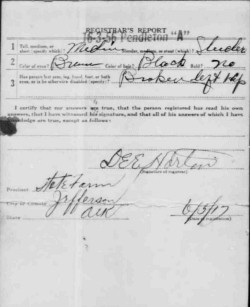 REGISTRAR'S REPORT
16-3-56 Pendleton "A"
1 Tall, medium, or short (specify which)? Medium Slender, medium, or stout (which)? Slender
2 Color of eyes? Brown Color of hair? Black Bald? no
3 Has person lost arm, leg, hand, foot, or both eyes, or is he otherwise disabled (specify)? Broken left Hip
I certify that my answers are true, that the person registered has read his own answers, that I have witnessed his signature, and that all of his answers of which I have knowledge are true, except as follows:
DEE Horton
(Signature of registrar)
Precinct State Farm
City or County Jefferson
State Ark
6/5/17